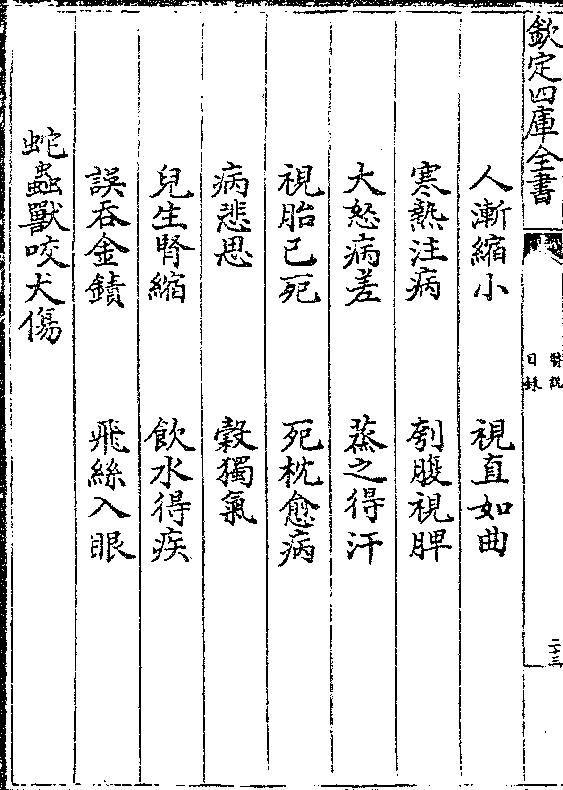 欽定四庫全書
醫說
目錄
二十三
人漸縮小　視直如曲
寒熱注病　刳腹視脾
大怒病差　蒸之得汗
視胎已死　死枕愈病
病悲思　穀獨氣
兒生腎縮　飲水得疾
誤吞金鐀　飛絲入眼
蛇蟲獸咬犬傷